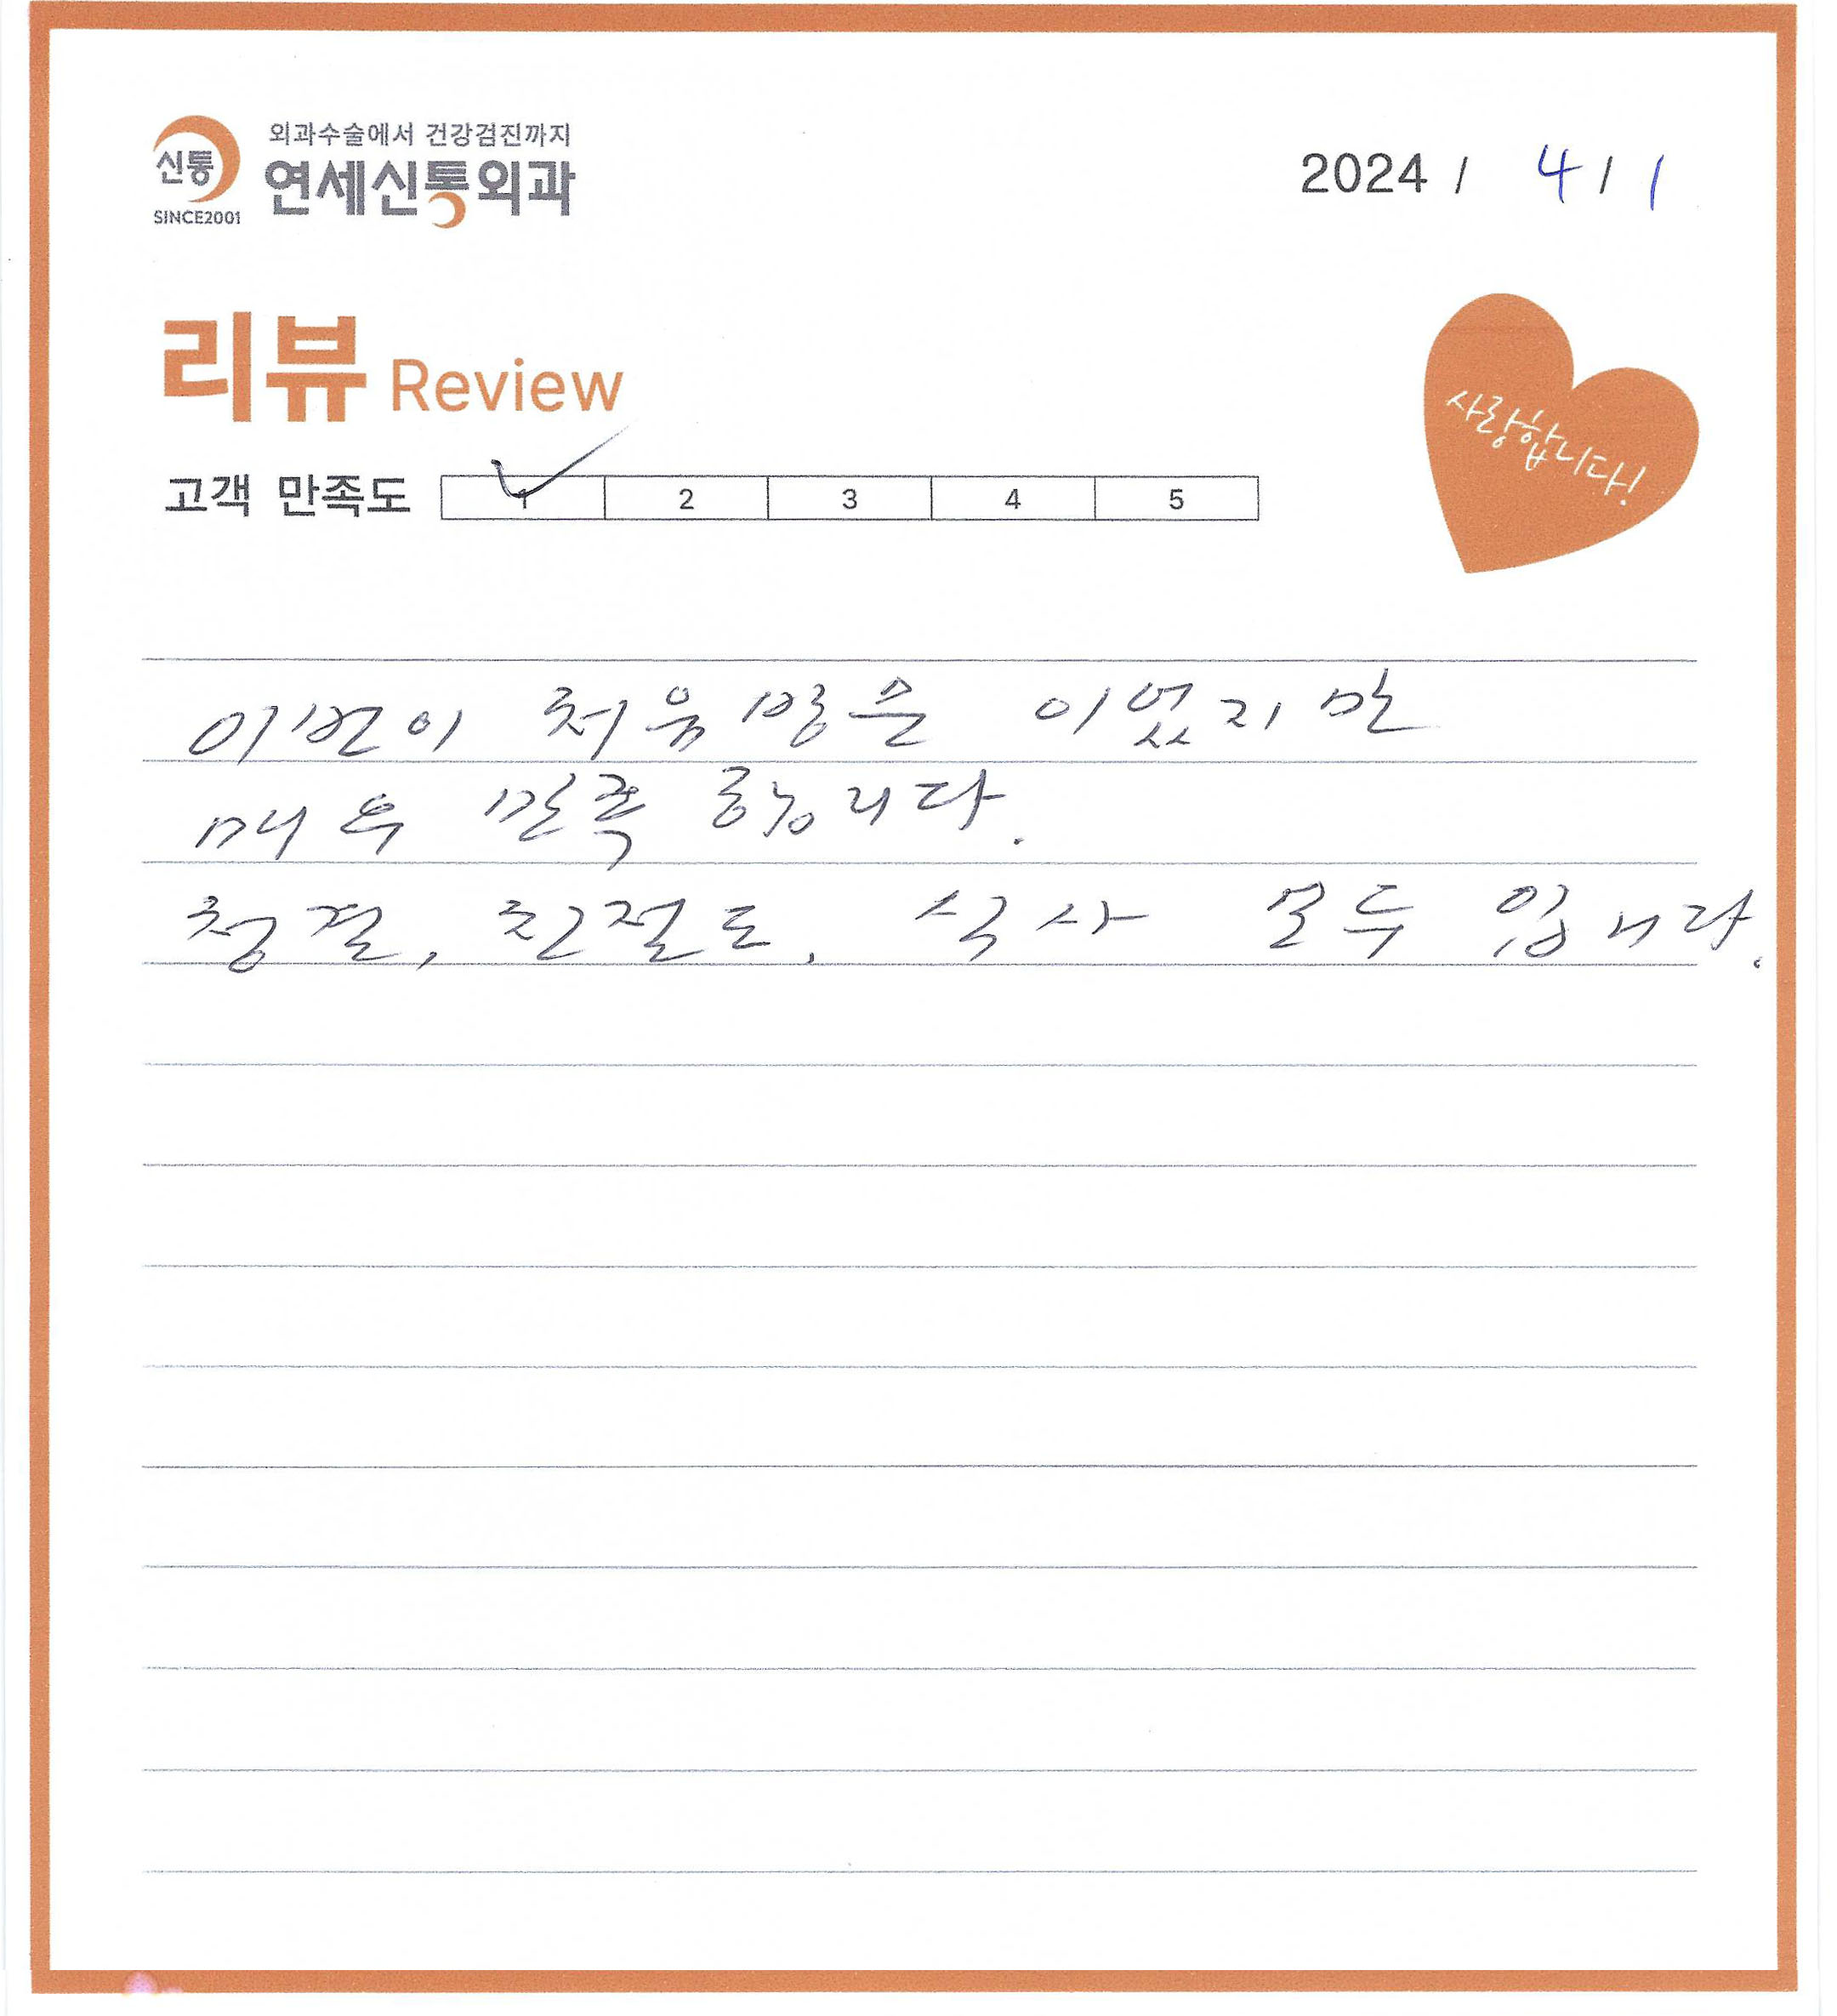 외과수술에서 건강검진까지
신통 연세신통외과
SINCE2001
2024 / 4 / 1
리뷰 Review
사랑합니다!
고객 만족도 1 2 3 4 5
이번이 처음 방문 이었지만
매우 만족 합니다.
청결, 친절도, 식사 모두 입니다.